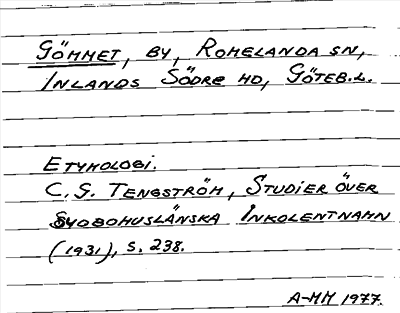 GÖMMET, BY, ROMELANDA SN,
INLANDS SÖDRE HD, GÖTEB.L.
ETYMOLOGI.
C.G. TENGSTRÖM, STUDIER ÖVER
SYDBOHUSLÄNSKA INKOLENTNAMN
(1931), S. 238.
A-MM 1977.